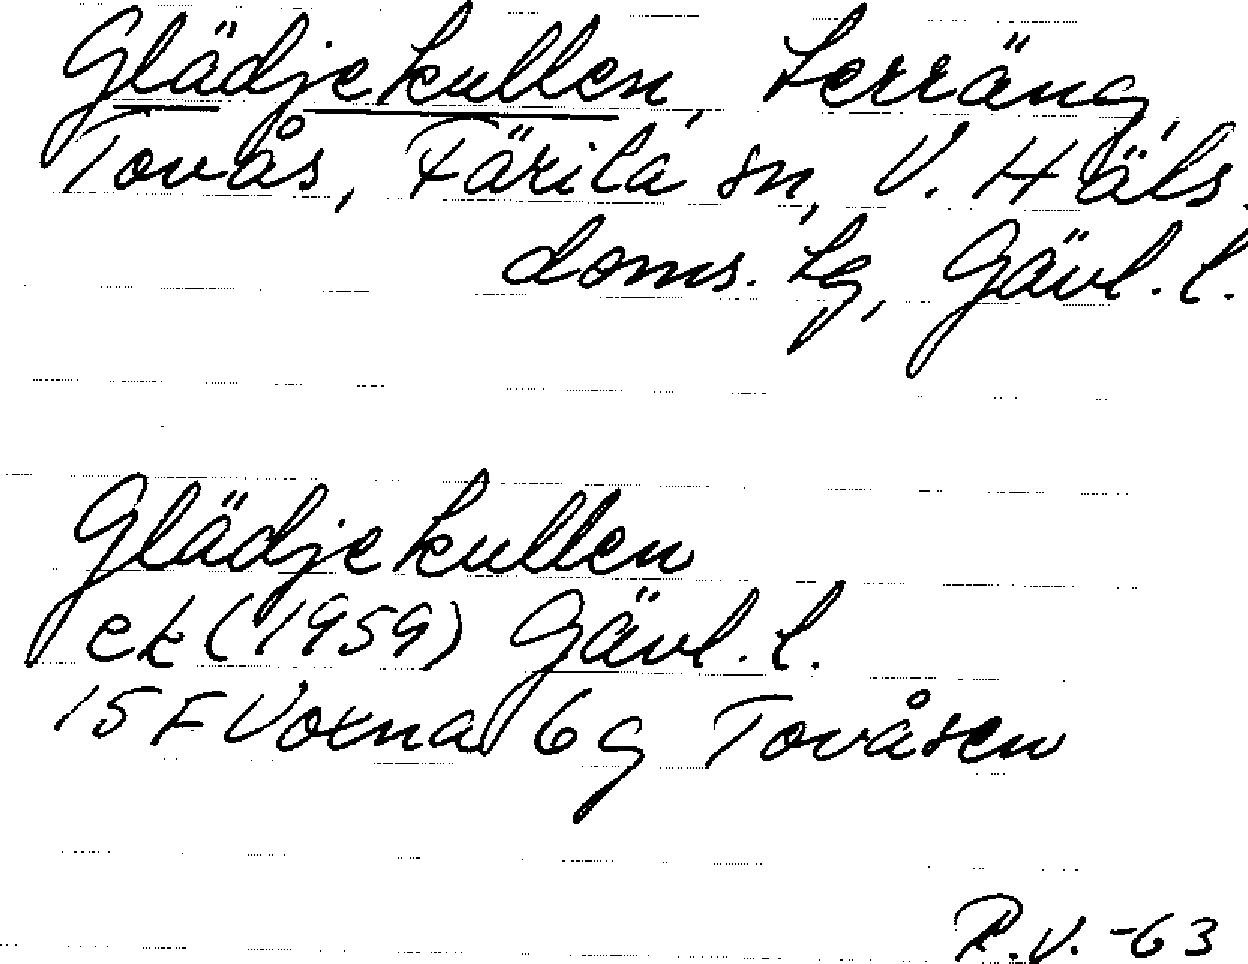 Glädjekullen, terräng,
Tovås, Färila sn, V. Häls.
doms. tg, Gävl. l.
Glädjekullen
ek (1959) Gävl. l.
15 F Voxna 6 g Tovåsen
R.V. -63